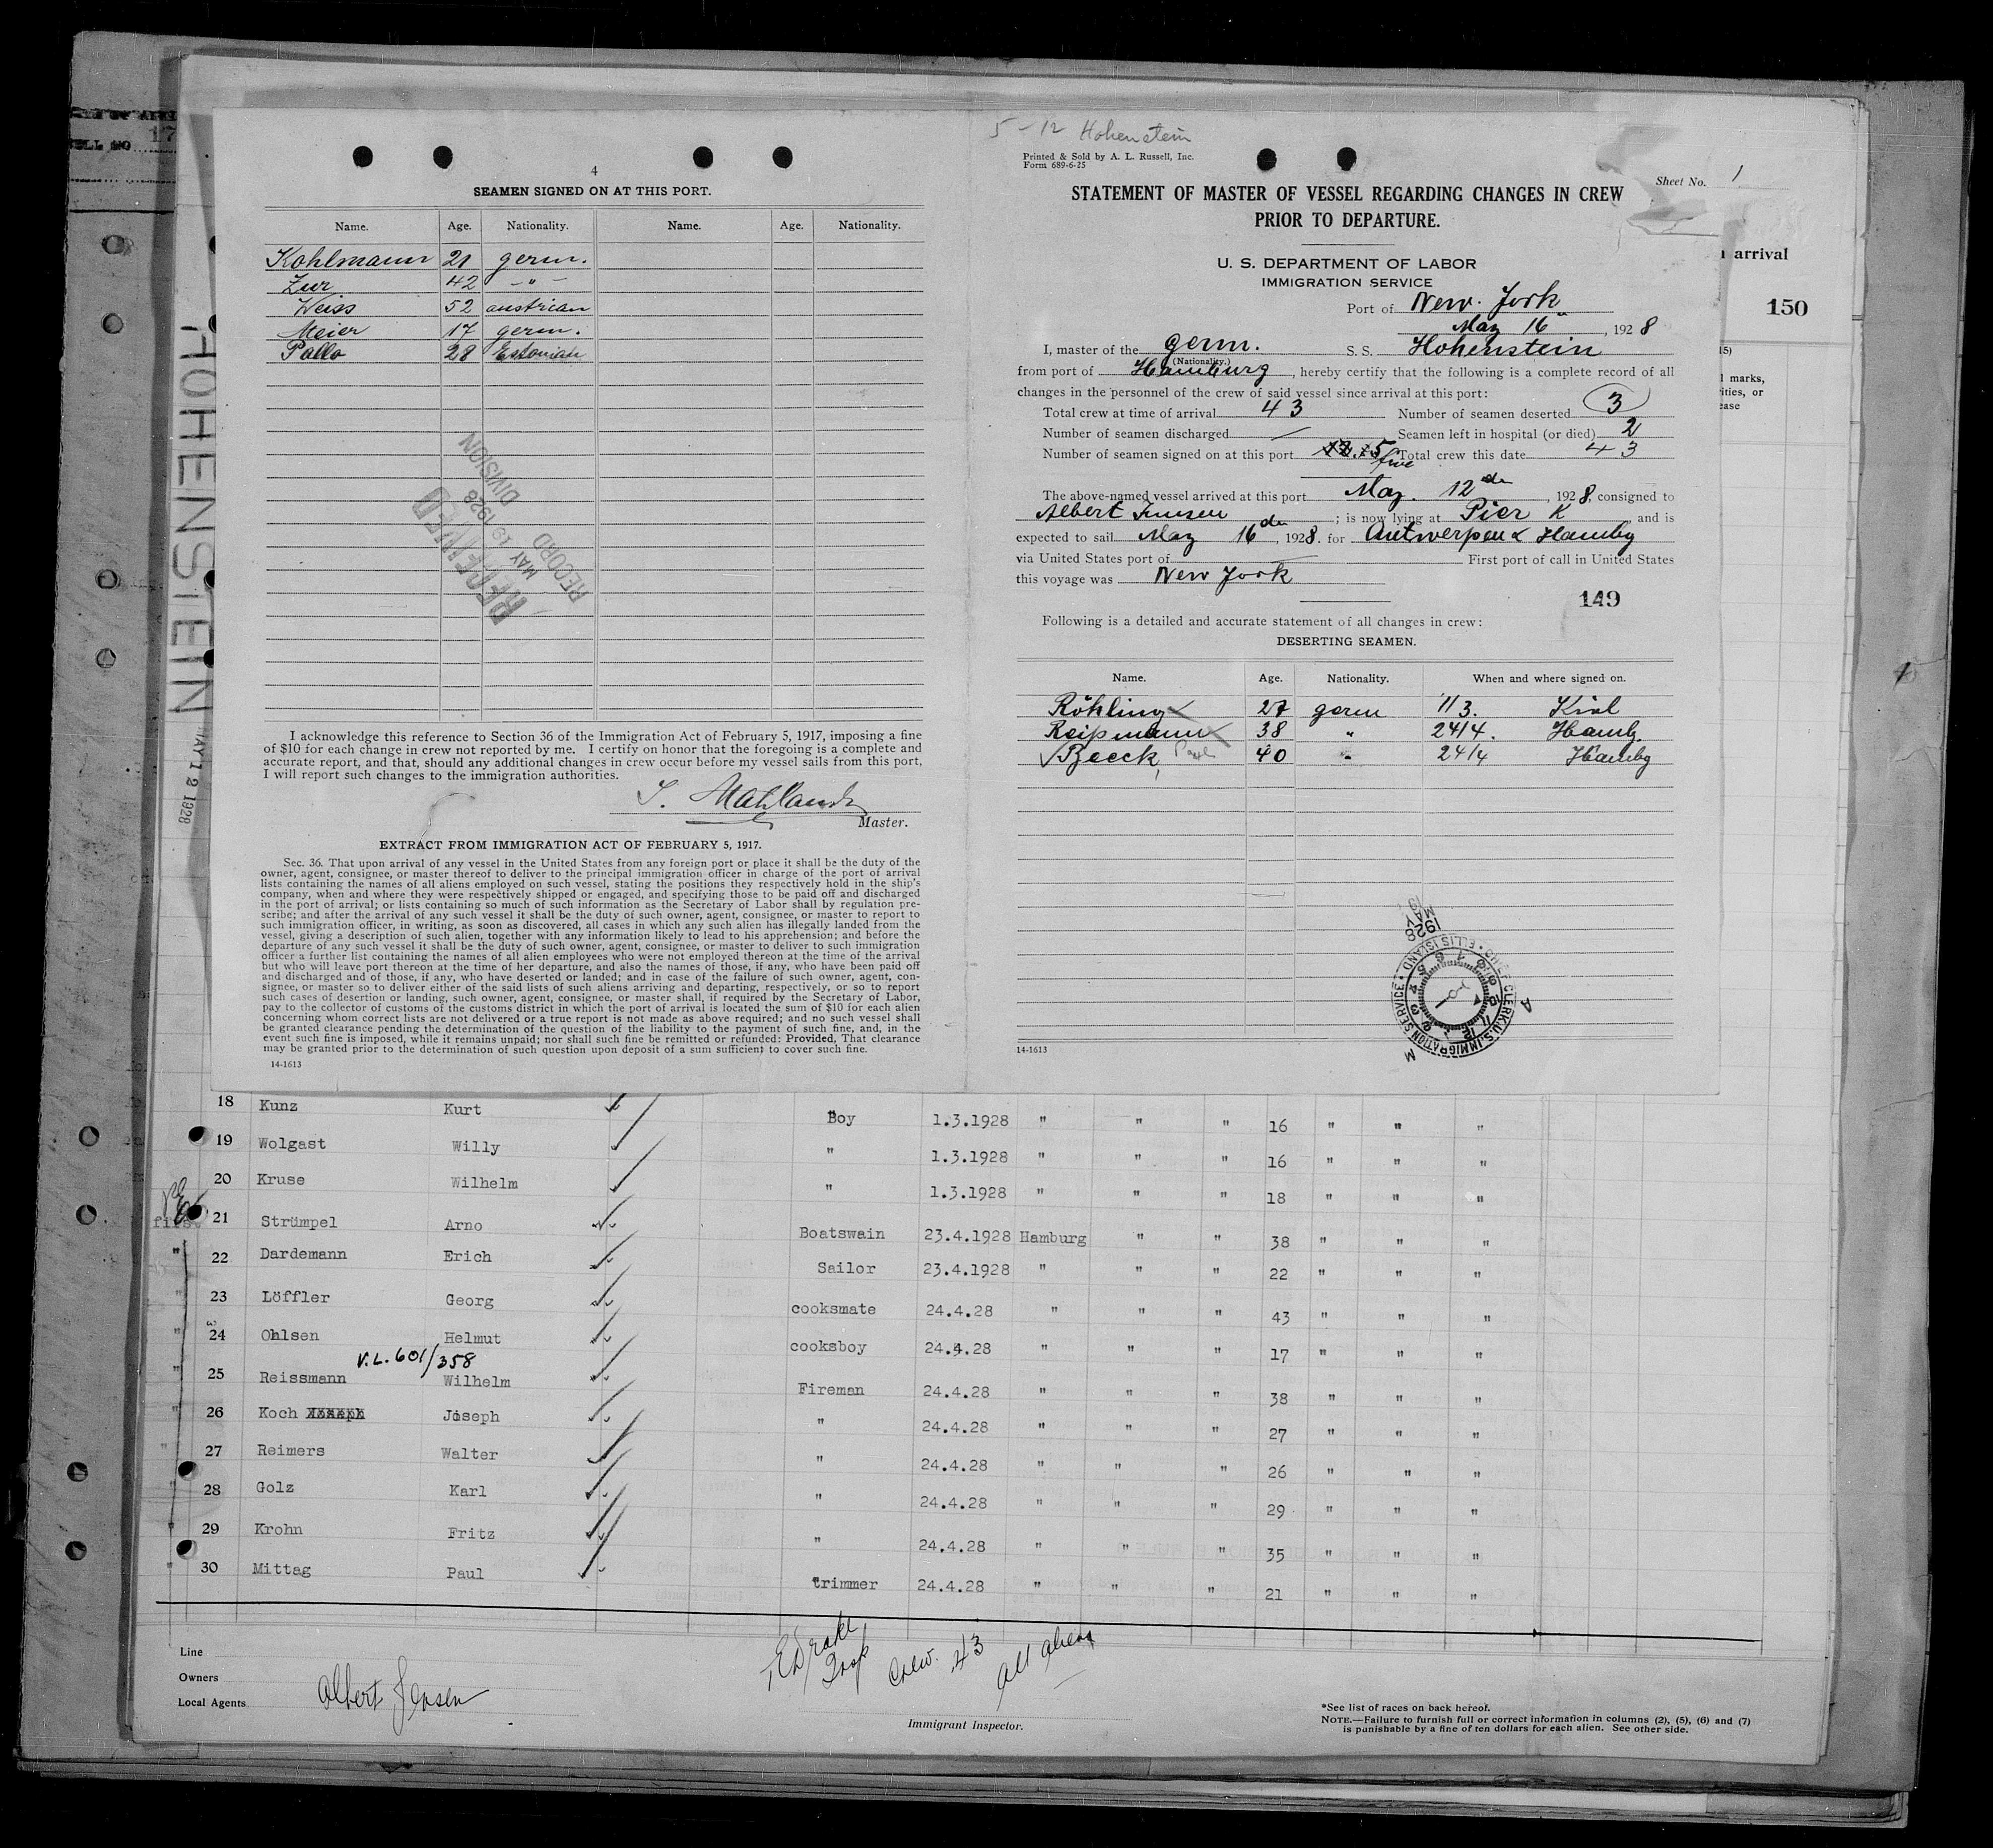 4
SEAMEN SIGNED ON AT THIS PORT.
Name. Age. Nationality. Name. Age. Nationality.
Kohlmann 21 germ.
Zur 42 -"-
Weiss 52 austrian
Meier 17 germ.
Pallo 28 Estonian
RECEIVED
MAY 19 1928
RECORD DIVISION
I acknowledge this reference to Section 36 of the Immigration Act of February 5, 1917, imposing a fine
of $10 for each change in crew not reported by me. I certify on honor that the foregoing is a complete and
accurate report, and that, should any additional changes in crew occur before my vessel sails from this port,
I will report such changes to the immigration authorities.
Master.
EXTRACT FROM IMMIGRATION ACT OF FEBRUARY 5, 1917.
Sec. 36. That upon arrival of any vessel in the United States from any foreign port or place it shall be the duty of the
owner, agent, consignee, or master thereof to deliver to the principal immigration officer in charge of the port of arrival
lists containing the names of all aliens employed on such vessel, stating the positions they respectively hold in the ship's
company, when and where they were respectively shipped or engaged, and specifying those to be paid off and discharged
in the port of arrival; or lists containing so much of such information as the Secretary of Labor shall by regulation pre-
scribe; and after the arrival of any such vessel it shall be the duty of such owner, agent, consignee, or master to report to
such immigration officer, in writing, as soon as discovered, all cases in which any such alien has illegally landed from the
vessel, giving a description of such alien, together with any information likely to lead to his apprehension; and before the
departure of any such vessel it shall be the duty of such owner, agent, consignee, or master to deliver to such immigration
officer a further list containing the names of all alien employees who were not employed thereon at the time of the arrival
but who will leave port thereon at the time of her departure, and also the names of those, if any, who have been paid off
and discharged and of those, if any, who have deserted or landed; and in case of the failure of such owner, agent, con-
signee, or master so to deliver either of the said lists of such aliens arriving and departing, respectively, or so to report
such cases of desertion or landing, such owner, agent, consignee, or master shall, if required by the Secretary of Labor,
pay to the collector of customs of the customs district in which the port of arrival is located the sum of $10 for each alien
concerning whom correct lists are not delivered or a true report is not made as above required; and no such vessel shall
be granted clearance pending the determination of the question of the liability to the payment of such fine, and, in the
event such fine is imposed, while it remains unpaid; nor shall such fine be remitted or refunded: Provided, That clearance
may be granted prior to the determination of such question upon deposit of a sum sufficient to cover such fine.
14-1613
5-12 Hohenstein
Printed & Sold by A. L. Russell, Inc.
Form 689-6-25
Sheet No. 1
STATEMENT OF MASTER OF VESSEL REGARDING CHANGES IN CREW
PRIOR TO DEPARTURE.
U. S. DEPARTMENT OF LABOR
IMMIGRATION SERVICE
Port of New-York
May 16, 1928
I, master of the germ. S. S. Hohenstein
(Nationality.)
from port of Hamburg, hereby certify that the following is a complete record of all
changes in the personnel of the crew of said vessel since arrival at this port:
Total crew at time of arrival 43 Number of seamen deserted 3
Number of seamen discharged — Seamen left in hospital (or died) 2
Number of seamen signed on at this port 5 five Total crew this date 43
The above-named vessel arrived at this port May. 12, 1928, consigned to
Albert Jensen; is now lying at Pier K, and is
expected to sail May 16, 1928. for Antwerpen & Hambg
via United States port of First port of call in United States
this voyage was New York
149
Following is a detailed and accurate statement of all changes in crew:
DESERTING SEAMEN.
Name. Age. Nationality. When and where signed on.
Röhling 27 germ 1/3. Kiel
Reißmann 38 " 24/4. Hamb.
Beeck, Paul 40 " 24/4 Hambg
1928 MAY 19
CHIEF CLERK U.S. IMMIGRATION SERVICE • ELLIS ISLAND •
14-1613
arrival
150
marks,
HOHENSTEIN
MAY 12 1928
18 Kunz Kurt Boy 1.3.1928 " " " 16 " " "
19 Wolgast Willy " 1.3.1928 " " " 16 " " "
20 Kruse Wilhelm " 1.3.1928 " " " 18 " " "
first 21 Strümpel Arno Boatswain 23.4.1928 Hamburg " " 38 " " "
" 22 Dardemann Erich Sailor 23.4.1928 " " " 22 " " "
" 23 Löffler Georg cooksmate 24.4.28 " " " 43 " " "
" 24 Ohlsen Helmut cooksboy 24.4.28 " " " 17 " " "
V.L. 601/358
" 25 Reissmann Wilhelm Fireman 24.4.28 " " " 38 " " "
" 26 Koch Joseph " 24.4.28 " " " 27 " " "
" 27 Reimers Walter " 24.4.28 " " " 26 " " "
" 28 Golz Karl " 24.4.28 " " " 29 " " "
" 29 Krohn Fritz " 24.4.28 " " " 35 " " "
" 30 Mittag Paul trimmer 24.4.28 " " " 21 " " "
Line
Owners
Local Agents Albert Jensen
Crew. 43 all aliens
Immigrant Inspector.
*See list of races on back hereof.
NOTE.—Failure to furnish full or correct information in columns (2), (5), (6) and (7)
is punishable by a fine of ten dollars for each alien. See other side.